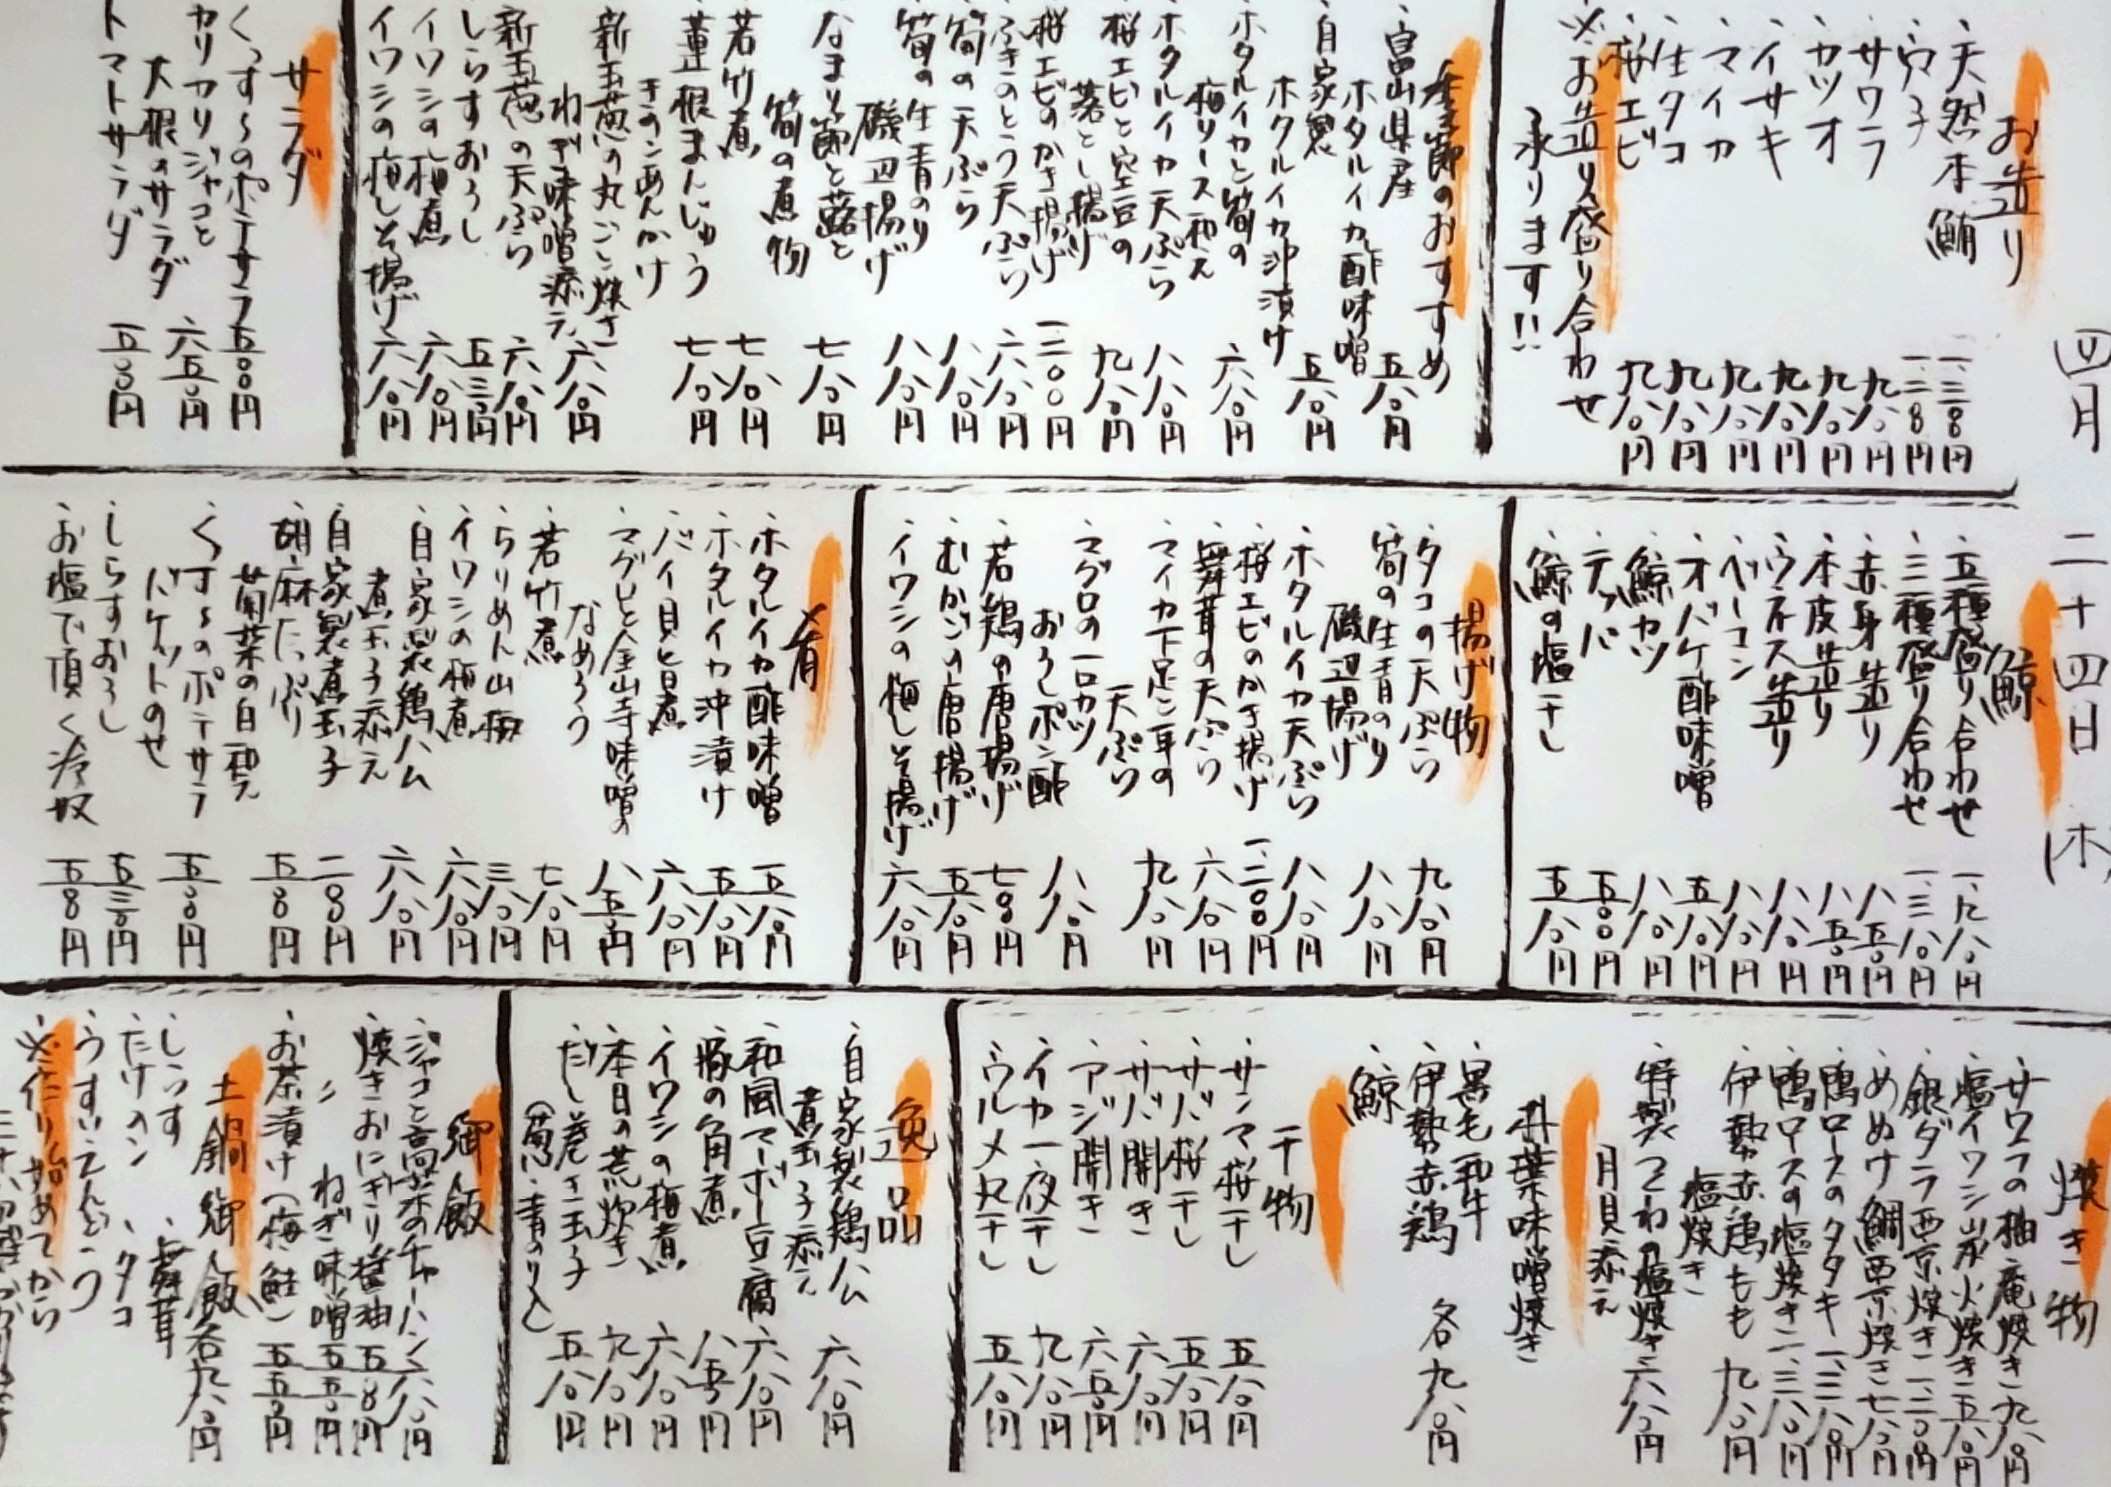 四月二十四日(木)
お造り
天然本鮪 一、三八〇円
穴子
サワラ 九八〇円
カツオ 九八〇円
イサキ 九八〇円
マイカ 九八〇円
生タコ 九八〇円
桜エビ 九八〇円
※お造り盛り合わせ
承ります!!
季節のおすすめ
富山県産
ホタルイカ酢味噌 五八〇円
自家製
ホタルイカ沖漬け 五八〇円
ホタルイカと筍の
梅ソース和え 六八〇円
ホタルイカ天ぷら 八八〇円
桜エビと空豆の
落とし揚げ 九八〇円
桜エビのかき揚げ 一二〇〇円
ふきのとう天ぷら 六八〇円
筍の天ぷら 八八〇円
筍の生青のり
磯辺揚げ 八八〇円
なまり節と蕗と
筍の煮物 七八〇円
若竹煮 七八〇円
蓮根まんじゅう
きのこあんかけ 七八〇円
新玉葱の丸ごと焼き
ねぎ味噌添え 六八〇円
新玉葱の天ぷら 六八〇円
しらすおろし 五三〇円
イワシの梅煮 六八〇円
イワシの梅しそ揚げ 六八〇円
サラダ
くっす〜のポテサラ 五〇〇円
カリカリジャコと
大根のサラダ 六五〇円
トマトサラダ 五〇〇円
鯨
五種盛り合わせ
三種盛り合わせ 一、三八〇円
赤身造り 八五〇円
本皮造り 八五〇円
ウネス造り 八八〇円
ベーコン 八八〇円
オバケ酢味噌 五八〇円
鯨カツ 八八〇円
テッパ 五〇〇円
鯨の塩干し 五八〇円
揚げ物
タコの天ぷら 九八〇円
筍の生青のり
磯辺揚げ 八八〇円
ホタルイカ天ぷら 八八〇円
桜エビのかき揚げ 一二〇〇円
舞茸の天ぷら 六八〇円
マイカ下足と耳の
天ぷら 九八〇円
マグロの一口カツ
おろしポン酢 八八〇円
若鶏の唐揚げ 七〇〇円
むかごの唐揚げ 五八〇円
イワシの梅しそ揚げ 六八〇円
肴
ホタルイカ酢味噌 五八〇円
ホタルイカ沖漬け 五八〇円
バイ貝旨煮 六八〇円
マグロと金山寺味噌の
なめろう 八五〇円
若竹煮 七八〇円
ちりめん山椒 三八〇円
イワシの梅煮 六八〇円
自家製鶏ハム
煮玉子添え 六八〇円
自家製煮玉子 二〇〇円
胡麻たっぷり
菊菜の白和え 五〇〇円
くっす〜のポテサラ
バケットのせ 五〇〇円
しらすおろし 五三〇円
お塩で頂く冷奴 五〇〇円
焼き物
サワラの柚庵焼き 九八〇円
塩イワシ炭火焼き 五八〇円
銀ダラ西京焼き 一、二〇〇円
めぬけ鯛西京焼き 七八〇円
鴨ロースのタタキ 一、三八〇円
鴨ロースの塩焼き 一、三八〇円
伊勢赤鶏もも
塩焼き 九八〇円
特製つくねの塩焼き 六八〇円
月見添え
朴葉味噌焼き
黒毛和牛
伊勢赤鶏 各九八〇円
鯨
干物
サンマ桜干し 五八〇円
サバ桜干し 五八〇円
サバ開き 六八〇円
アジ開き 六五〇円
イカ一夜干し 九八〇円
ウルメ丸干し 五八〇円
逸品
自家製鶏ハム
煮玉子添え 六八〇円
和風マーボー豆腐 六八〇円
豚の角煮 八五〇円
イワシの梅煮 六八〇円
本日の荒炊き 九八〇円
だし巻き玉子 五八〇円
(葱、青のり入)
御飯
ジャコと高菜のチャーハン 六八〇円
焼きおにぎり醤油 五〇〇円
〃 ねぎ味噌 五五〇円
お茶漬け(梅、鮭) 五五〇円
土鍋御飯 各九八〇円
しらす 舞茸
たけのこ タコ
うすいえんどう
※作り始めてから